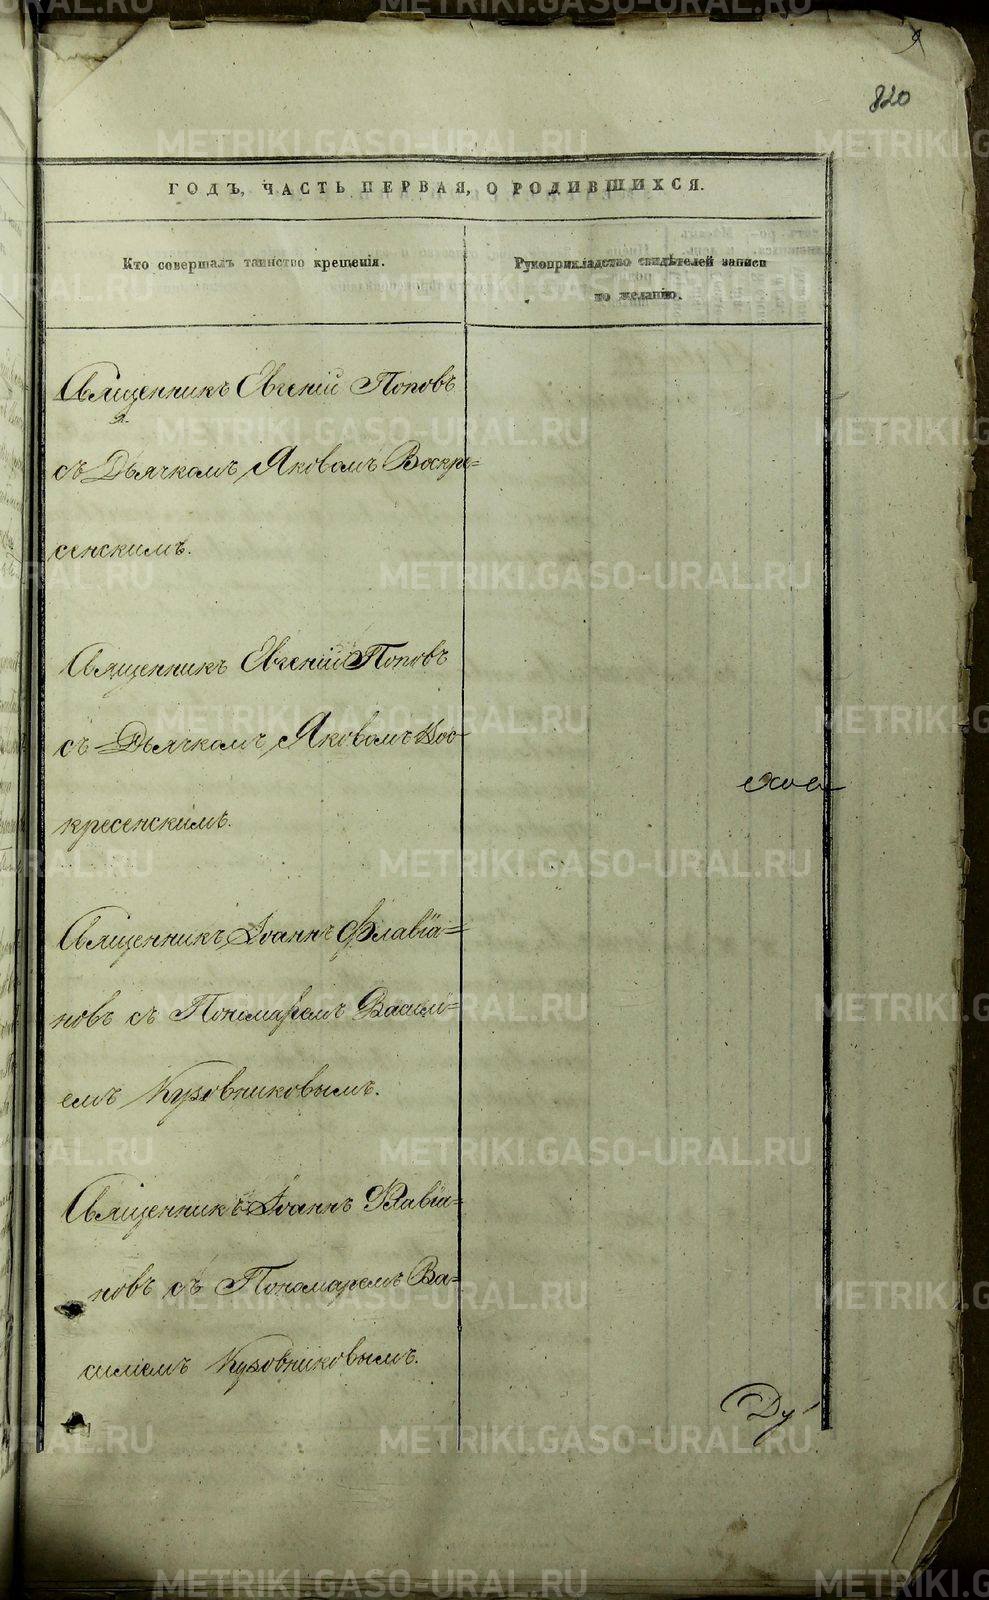 9
820
ГОДЪ, ЧАСТЬ ПЕРВАЯ, О РОДИВШИХСЯ.
Кто совершалъ таинство крещенія.
Рукоприкладство свидѣтелей записи
по желанію.
Священникъ Евгеній Поповъ
съ Дьячкомъ Яковомъ Воскре=
сенскимъ.
Священникъ Евгеній Поповъ
съ Дьячкомъ Яковомъ Вос-
кресенскимъ.
Священникъ Іоаннъ Флавіа=
новъ съ Пономаремъ Васили=
емъ Кузовниковымъ.
Священникъ Іоаннъ Флавіа=
новъ съ Пономаремъ Ва=
силіемъ Кузовниковымъ.
Ду
METRIKI.GASO-URAL.RU